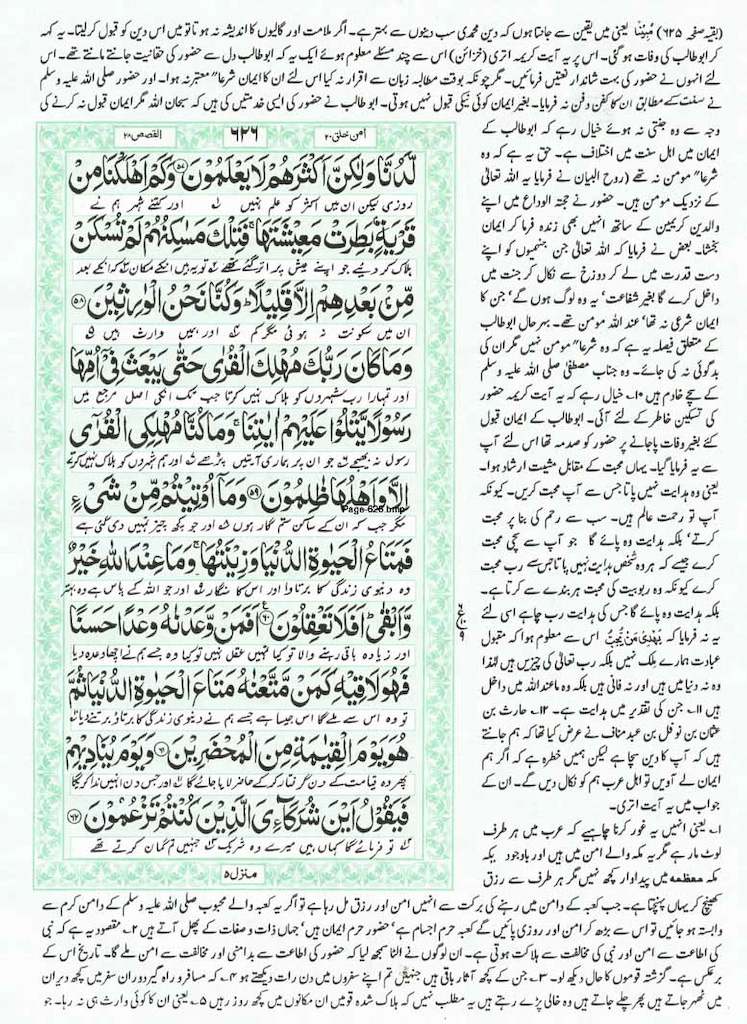 (بقیہ صفحہ ۶۲۵) مُبِیْنًا یعنی میں یقین سے جانتا ہوں کہ دین محمدی سب دینوں سے بہتر ہے۔ اگر ملامت اور گالیوں کا اندیشہ نہ ہوتا تو میں اس دین کو قبول کر لیتا۔ یہ کہہ
کر ابوطالب کی وفات ہو گئی۔ اس پر یہ آیت کریمہ اتری (خزائن) اس سے چند مسئلے معلوم ہوئے ایک یہ کہ ابوطالب دل سے حضور کی حقانیت جانتے مانتے تھے۔ اس
لئے انہوں نے حضور کی بہت شاندار نعتیں فرمائیں۔ مگر چونکہ بوقت مطالبہ زبان سے اقرار نہ کیا اس لئے ان کا ایمان شرعا" معتبر نہ ہوا۔ اور حضور صلی اللہ علیہ وسلم
نے سنت کے مطابق ان کا کفن دفن نہ فرمایا۔ بغیر ایمان کوئی نیکی قبول نہیں ہوتی۔ ابوطالب نے حضور کی ایسی خدمتیں کی ہیں کہ سبحان اللہ مگر ایمان قبول نہ کرنے کی
وجہ سے وہ جنتی نہ ہوئے خیال رہے کہ ابوطالب کے
ایمان میں اہل سنت میں اختلاف ہے۔ حق یہ ہے کہ وہ
شرعا" مومن نہ تھے (روح البیان نے فرمایا یہ اللہ تعالیٰ
کے نزدیک مومن ہیں۔ حضور نے حجتہ الوداع میں اپنے
والدین کریمین کے ساتھ انہیں بھی زندہ فرما کر ایمان
بخشا۔ بعض نے فرمایا کہ اللہ تعالیٰ جن جنہمیوں کو اپنے
دست قدرت میں لے کر دوزخ سے نکال کر جنت میں
داخل کرے گا بغیر شفاعت' یہ وہ لوگ ہوں گے' جن کا
ایمان شرعی نہ تھا' عند اللہ مومن تھے۔ بہر حال ابوطالب
کے متعلق فیصلہ یہ ہے کہ وہ شرعا" مومن نہیں مگر ان کی
بدگوئی نہ کی جائے۔ وہ جناب مصطفیٰ صلی اللہ علیہ وسلم
کے سچے خادم ہیں ۱۰۔ خیال رہے کہ یہ آیت کریمہ حضور
کی تسکین خاطر کے لئے آئی۔ ابوطالب کے ایمان قبول
کئے بغیر وفات پا جانے پر حضور کو صدمہ تھا اس لئے آپ
سے یہ فرمایا گیا۔ یہاں محبت کے مقابل مشیت ارشاد ہوا۔
یعنی وہ ہدایت نہیں پاتا جس سے آپ محبت کریں۔ کیونکہ
آپ تو رحمت عالم ہیں۔ سب سے رحم کی بنا پر محبت
کرتے' بلکہ ہدایت وہ پائے گا جو آپ سے سچی محبت
کرے جیسے کہ ہر وہ شخص ہدایت نہیں پاتا جس سے رب محبت
کرے کیونکہ وہ ربوبیت کی محبت ہر بندے سے کرتا ہے۔
بلکہ ہدایت وہ پائے گا جس کی ہدایت رب چاہے اسی لئے
یہ نہ فرمایا کہ یَھْدِیْ مَنْ یُّحِبُّ اس سے معلوم ہوا کہ مقبول
عبادت ہمارے ملک نہیں بلکہ رب تعالیٰ کی چیزیں ہیں لہٰذا
وہ نہ دنیا میں ہیں اور نہ فانی ہیں بلکہ وہ ماعند اللہ میں داخل
ہیں ۱۱۔ جن کی تقدیر میں ہدایت ہے۔ ۱۲۔ حارث بن
عثمان بن نوفل بن عبد مناف نے عرض کیا تھا کہ ہم جانتے
ہیں کہ آپ کا دین سچا ہے لیکن ہمیں خطرہ ہے کہ اگر ہم
ایمان لے آویں تو اہل عرب ہم کو نکال دیں گے۔ ان کے
جواب میں یہ آیت اتری۔
۱۔ یعنی انہیں یہ غور کرنا چاہیے کہ عرب میں ہر طرف
لوٹ مار ہے مگر یہ مکہ والے امن میں ہیں اور باوجود یکہ
مکہ معظمہ میں پیداوار کچھ نہیں مگر ہر طرف سے رزق
امن خلق ۲۰
۶۲۶
القصص ۲۸
لَّدُنَّا وَلٰكِنَّ اَكْثَرَهُمْ لَا يَعْلَمُوْنَ ۵۷ وَكَمْ اَهْلَكْنَا مِنْ
روزی لیکن ان میں اکثر کو علم نہیں اور کتنے شہر ہم نے
قَرْيَةٍۭ بَطِرَتْ مَعِيْشَتَهَا ۚ فَتِلْكَ مَسٰكِنُهُمْ لَمْ تُسْكَنْ
ہلاک کر دئیے جو اپنے عیش پر اتر گئے تھے تو یہ ہیں انکے مکان کہ انکے بعد
مِّنْۢ بَعْدِهِمْ اِلَّا قَلِيْلًا ؕ وَكُنَّا نَحْنُ الْوٰرِثِيْنَ ۵۸
ان میں سکونت نہ ہوئی مگر کم اور ہمیں وارث ہیں
وَمَا كَانَ رَبُّكَ مُهْلِكَ الْقُرٰى حَتّٰى يَبْعَثَ فِيْۤ اُمِّهَا
اور تمہارا رب شہروں کو ہلاک نہیں کرتا جب تک انکے اصل مرجع میں
رَسُوْلًا يَّتْلُوْا عَلَيْهِمْ اٰيٰتِنَا ۚ وَمَا كُنَّا مُهْلِكِى الْقُرٰٓى
رسول نہ بھیجے جو ان پر ہماری آیتیں پڑھے اور ہم شہروں کو ہلاک نہیں کرتے
اِلَّا وَاَهْلُهَا ظٰلِمُوْنَ ۵۹ وَمَاۤ اُوْتِيْتُمْ مِّنْ شَيْءٍ
Page-626.bmp
مگر جب کہ ان کے ساکن ستم گار ہوں اور جو کچھ چیز تمہیں دی گئی ہے
فَمَتَاعُ الْحَيٰوةِ الدُّنْيَا وَزِيْنَتُهَا ۚ وَمَا عِنْدَ اللّٰهِ خَيْرٌ
وہ دنیوی زندگی کا برتاوا اور اس کا سنگار اور جو اللہ کے پاس ہے وہ بہتر
وَّاَبْقٰى ؕ اَفَلَا تَعْقِلُوْنَ ۶۰ اَفَمَنْ وَّعَدْنٰهُ وَعْدًا حَسَنًا
اور زیادہ باقی رہنے والا تو کیا تمہیں عقل نہیں تو کیا وہ جسے ہم نے اچھا وعدہ دیا
فَهُوَ لَاقِيْهِ كَمَنْ مَّتَّعْنٰهُ مَتَاعَ الْحَيٰوةِ الدُّنْيَا ثُمَّ
تو وہ اس سے ملے گا اس جیسا ہے جسے ہم نے دنیوی زندگی کا برتاؤ برتنے دیا
هُوَ يَوْمَ الْقِيٰمَةِ مِنَ الْمُحْضَرِيْنَ ۶۱ وَيَوْمَ يُنَادِيْهِمْ
پھر وہ قیامت کے دن گرفتار کر کے حاضر لایا جائے گا اور جس دن انہیں ندا کریگا
فَيَقُوْلُ اَيْنَ شُرَكَآءِىَ الَّذِيْنَ كُنْتُمْ تَزْعُمُوْنَ ۶۲
تو فرمائے گا کہاں ہیں میرے وہ شریک جنہیں تم گمان کرتے تھے
منزل ۵
کھینچ کر یہاں پہنچتا ہے۔ جب کعبہ کے دامن میں رہنے کی برکت سے انہیں امن اور رزق مل رہا ہے تو اگر یہ کعبہ والے محبوب صلی اللہ علیہ وسلم کے دامن کرم سے
وابستہ ہو جائیں تو اس سے بڑھ کر امن اور روزی پائیں گے کعبہ حرم اجسام ہے' حضور حرم ایمان ہیں' جہاں ذات و صفات کے پھل آتے ہیں ۲۔ مقصود یہ ہے کہ نبی
کی اطاعت سے امن اور نبی کی مخالفت سے ہلاکت ہوتی ہے۔ ان لوگوں نے الٹا سمجھ لیا کہ حضور کی اطاعت سے بدامنی اور مخالفت سے امن ملے گا۔ تاریخ اس کے
برعکس ہے۔ گزشتہ قوموں کا حال دیکھ لو۔ ۳۔ جن کے کچھ آثار باقی ہیں جنہیں تم اپنے سفروں میں دن رات دیکھتے ہو ۴۔ کہ مسافر و راہ گیر دوران سفر میں کچھ دیر ان
میں ٹھہر جاتے ہیں پھر چلے جاتے ہیں وہ خالی پڑے رہتے ہیں یہ مطلب نہیں کہ ہلاک شدہ قومیں ان مکانوں میں کچھ روز رہیں ۵۔ یعنی ان کا کوئی وارث ہی نہ رہا۔ جو